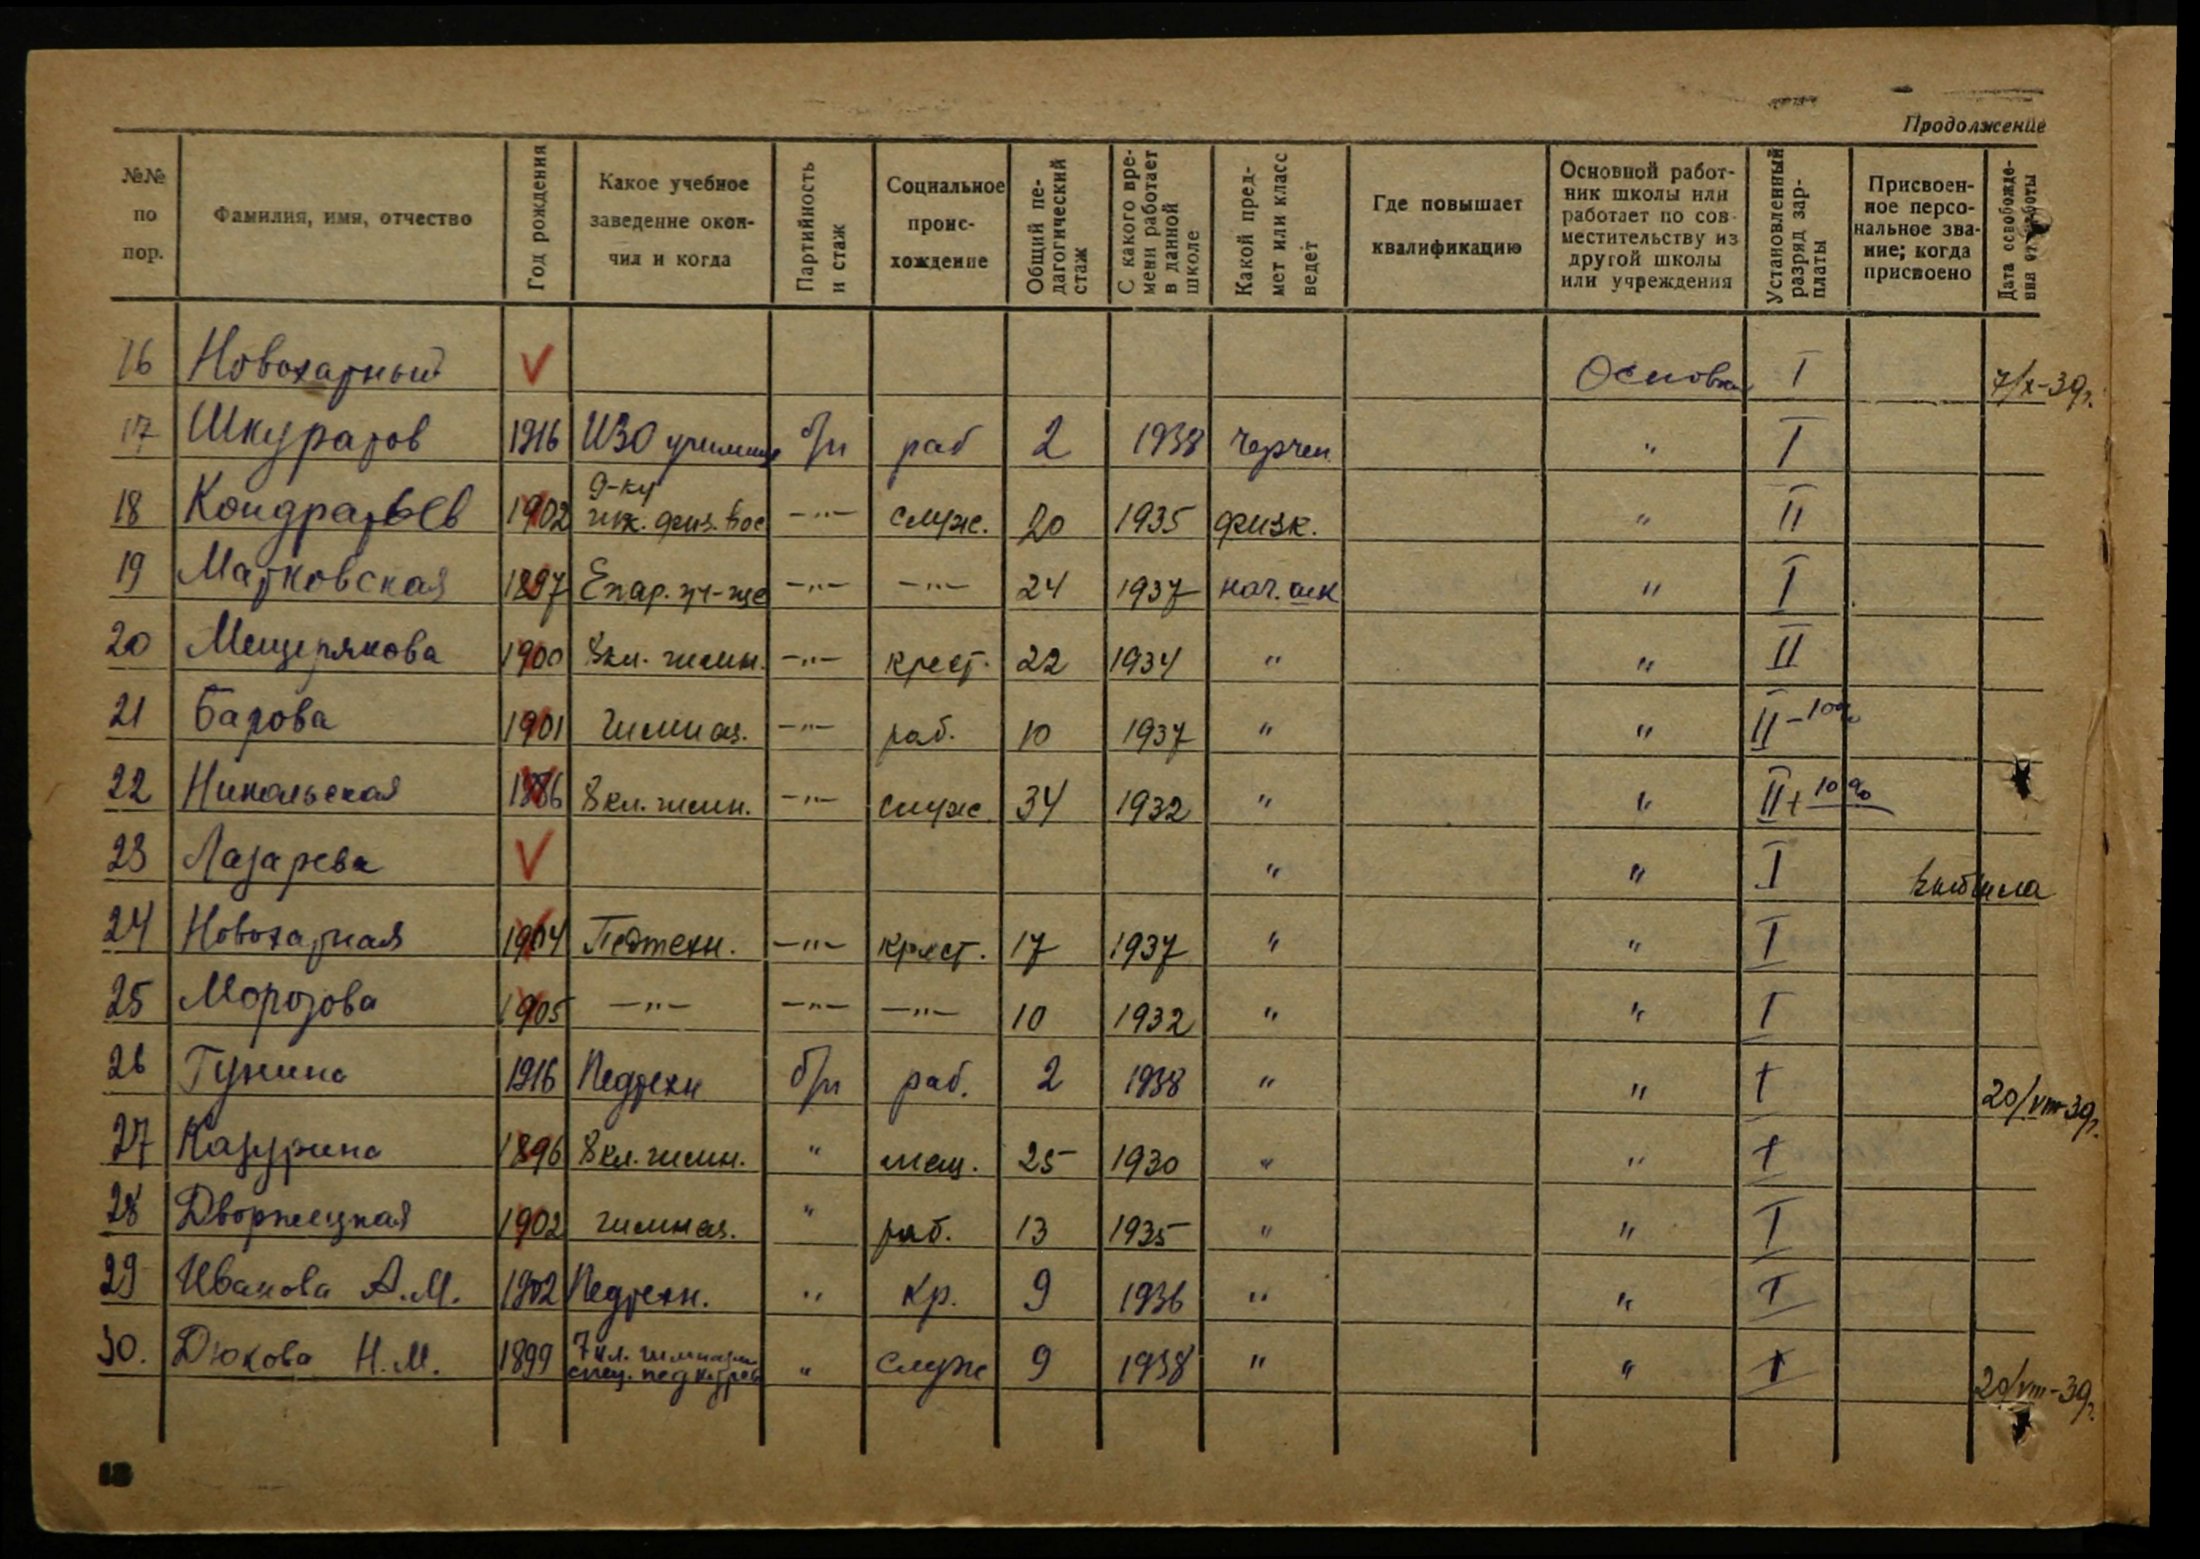 Продолжение
№№ по пор.
Фамилия, имя, отчество
Год рождения
Какое учебное заведение окончил и когда
Партийность и стаж
Социальное происхождение
Общий педагогический стаж
С какого времени работает в данной школе
Какой предмет или класс ведет
Где повышает квалификацию
Основной работник школы или работает по совместительству из другой школы или учреждения
Установленный разряд зарплаты
Присвоенное персональное звание; когда присвоено
Дата освобождения от работы
16 Новохатный Основн I 7/X-39г.
17 Шкуратов 1916 ИЗО училище б/п раб 2 1938 Черчен. " I
18 Кондратьев 1902 9-ку инж. физ. вос -"- служ. 20 1935 физк. " II
19 Матковская 1897 Епар. уч-ще -"- -"- 24 1937 нач. шк " I
20 Мещерякова 1900 8кл. гимн. -"- крест. 22 1934 " " II
21 Батова 1901 гимназ. -"- раб. 10 1937 " " II-10%
22 Никольская 1886 8 кл. гимн. -"- служ. 34 1932 " " II+10%
23 Лазарева " " I выбыла
24 Новохатная 1904 Педтехн. -"- крест. 17 1937 " " I
25 Морозова 1905 -"- -"- -"- 10 1932 " " I
26 Гунина 1916 Педтехн б/п раб. 2 1938 " " I 20/VIII-39г.
27 Казурина 1896 8 кл. гимн. " мещ. 25 1930 " " I
28 Дворжецкая 1902 гимназ. " раб. 13 1935 " " I
29 Иванова А.М. 1902 Педтехн. " Кр. 9 1936 " " I
30. Дюкова Н.М. 1899 7 кл. гимназии " служ 9 1938 " " I 20/VIII-39г.
18